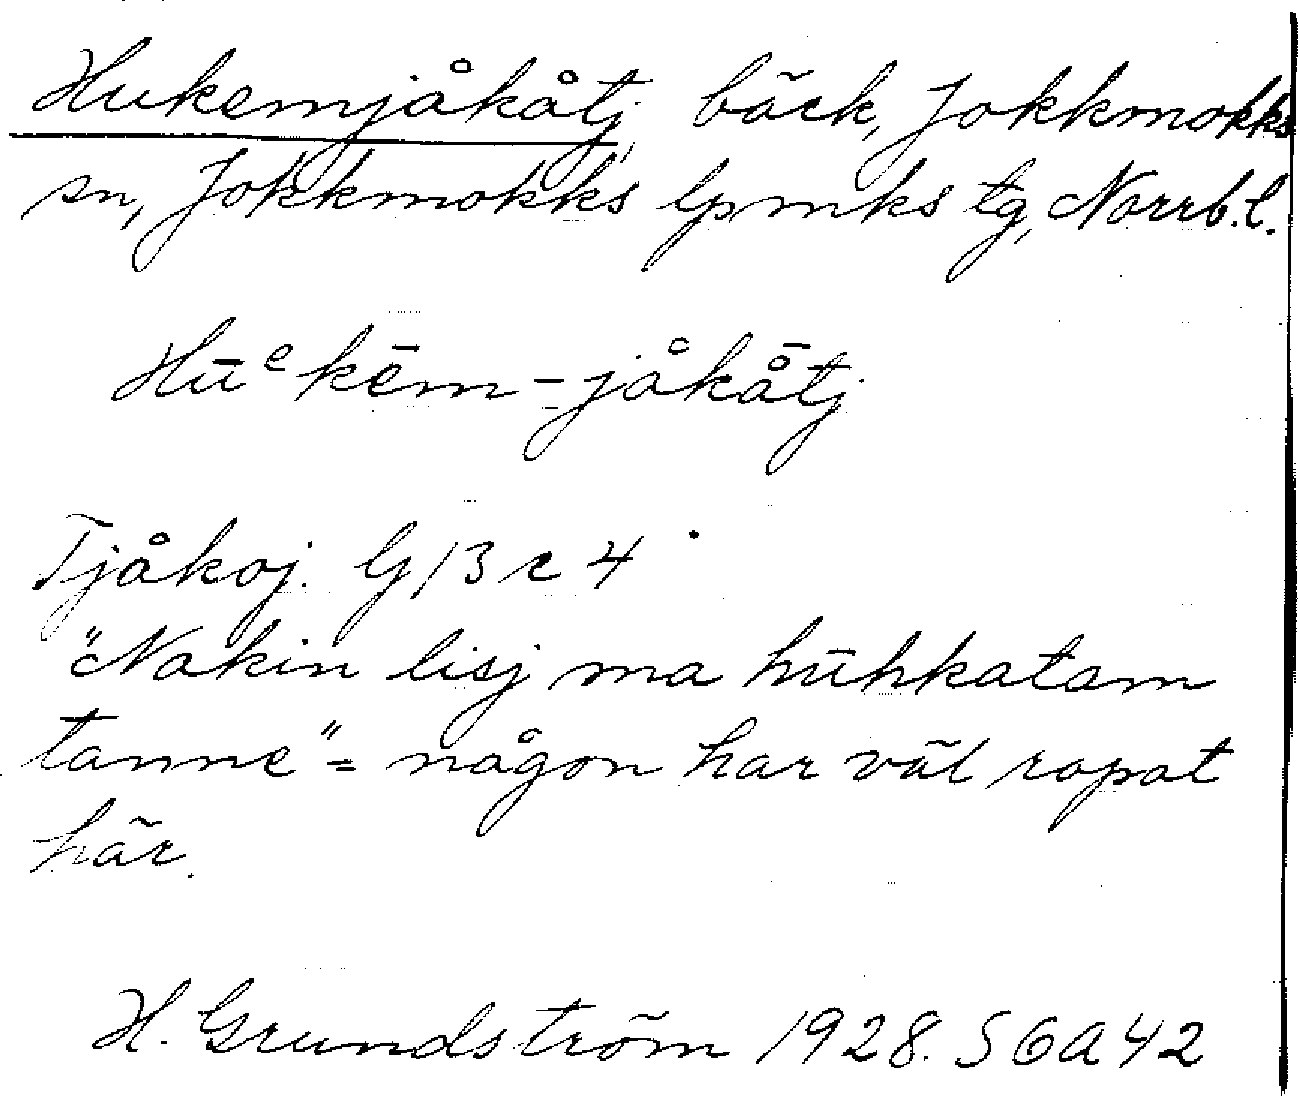 Hukemjåkåtj, bäck, Jokkmokks
sn, Jokkmokks lpmks tg, Norrb. l.
Hūᵉkēm-jåkå̄tj
Tjåkoj. G 13 c 4
"Nakin lisj ma hūhkatam
tanne" = någon har väl ropat
här.
H. Grundström 1928. S 6 A 42